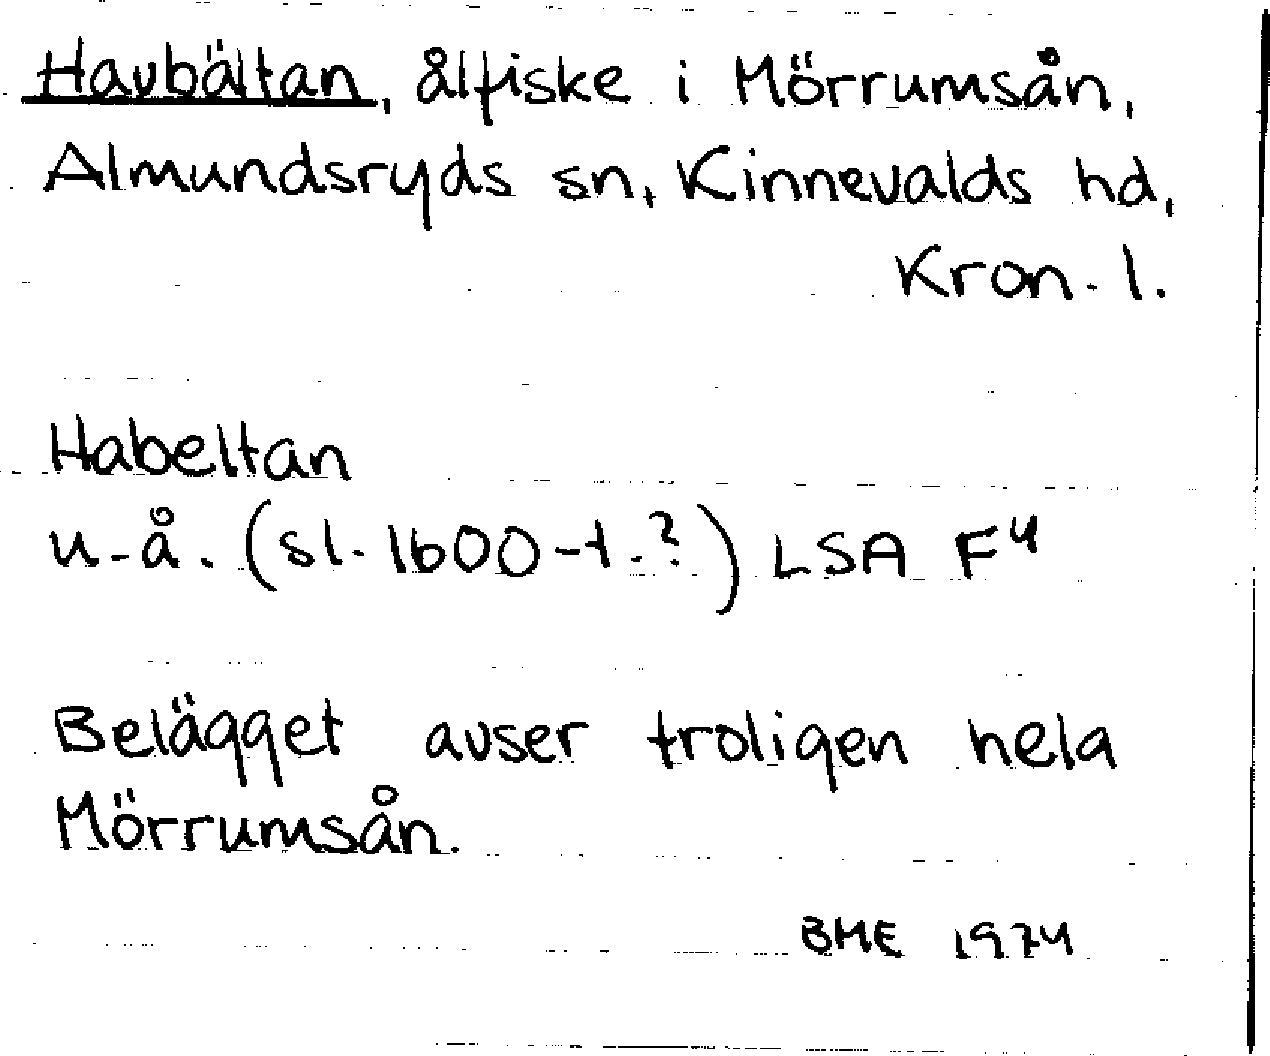 Havbältan, ålfiske i Mörrumsån,
Almundsryds sn, Kinnevalds hd,
Kron. l.
Habeltan
u.å. (sl. 1600-t.?) LSA F4
Belägget avser troligen hela
Mörrumsån.
BME 1974